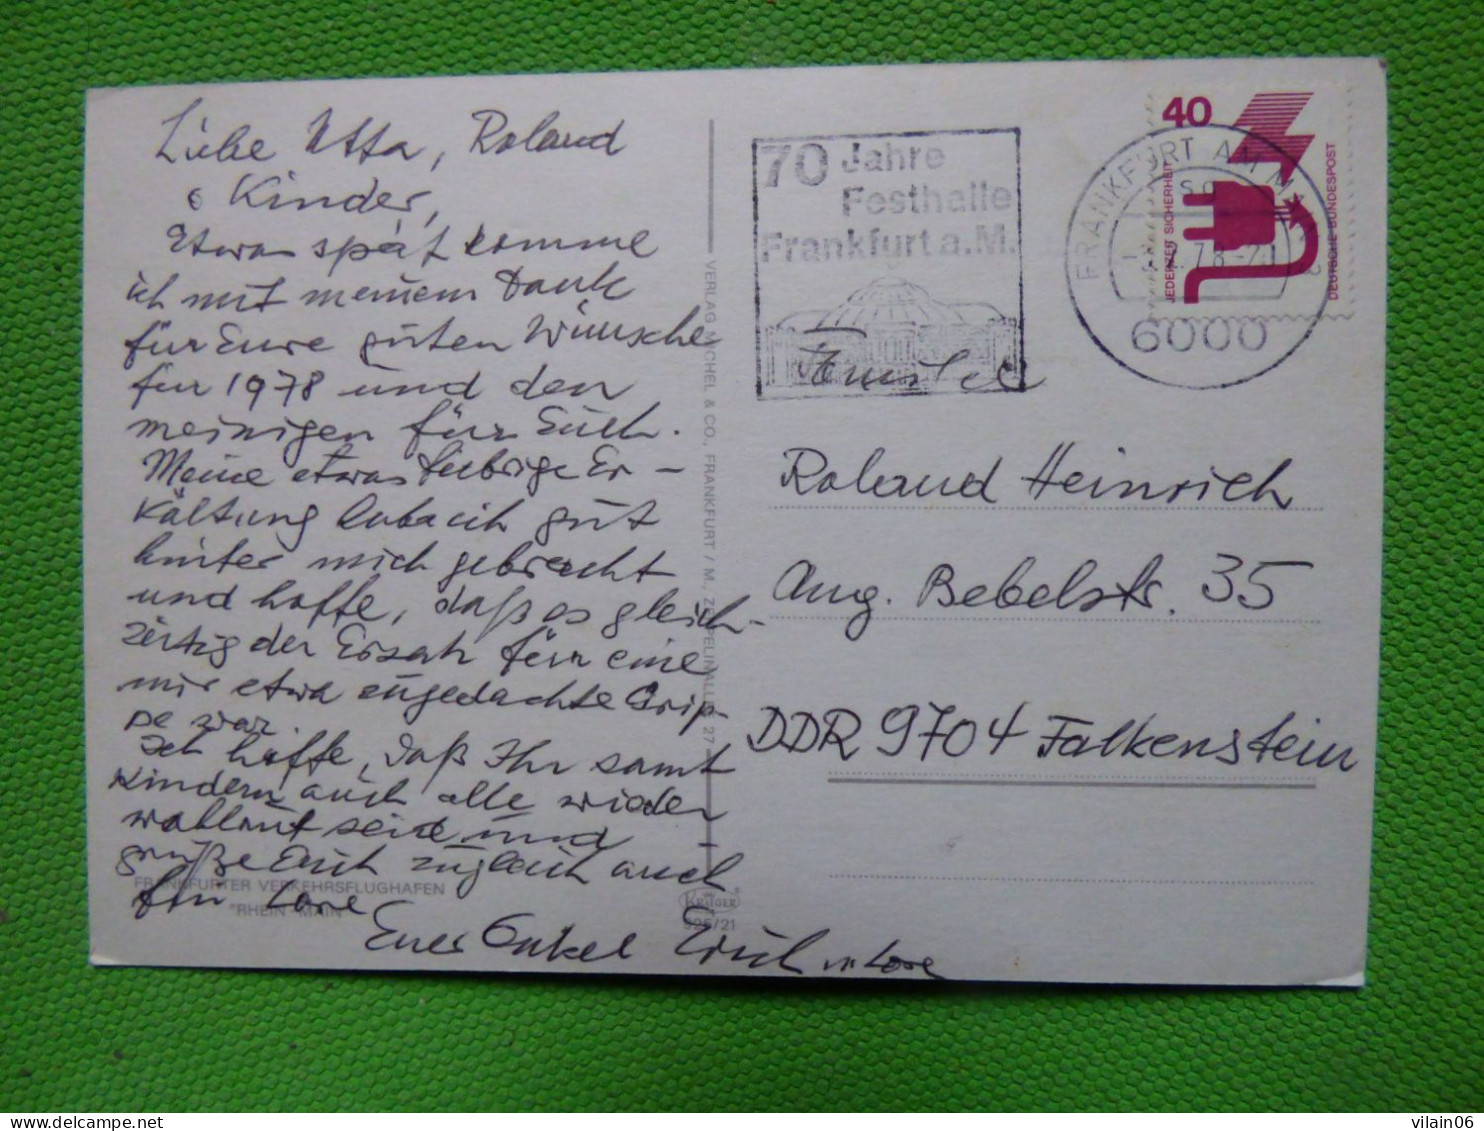 Liebe Utta, Roland
Kinder,
Etwas spät komme
ich mit meinem Dank
für Eure guten Wünsche
für 1978 und den
meinigen für Euch.
Meine etwas Er-
kältung hab ich gut
hinter mich gebracht
und hoffe, daß es gleich-
zeitig der Ersatz für eine
mir etwa zugedachte Grip-
pe war
Ich hoffe, daß Ihr samt
Kindern auch alle wieder
wohlauf seid und
grüße Euch zugleich auch
Lore
Euer Onkel Erich u. Lore
FRANKFURTER VERKEHRSFLUGHAFEN
"RHEIN-MAIN"
VERLAG MICHEL & CO., FRANKFURT / M., ZEPPELINALLEE 27
KRÜGER
925/21
70 Jahre
Festhalle
Frankfurt a.M.
FRANKFURT AM MAIN
6000
40
JEDERZEIT SICHERHEIT
DEUTSCHE BUNDESPOST
Familie
Roland Heinrich
Aug. Bebelstr. 35
DDR 9704 Falkenstein
vilain06
vilain06